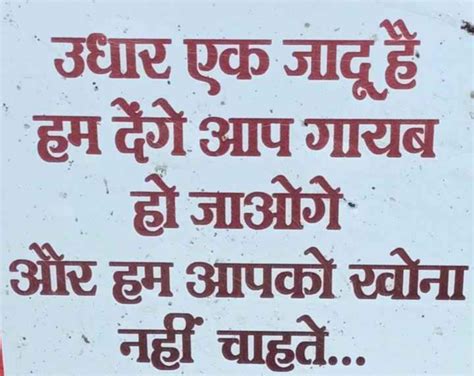 उधार एक जादू है
हम देंगे आप गायब
हो जाओगे
और हम आपको खोना
नहीं चाहते...